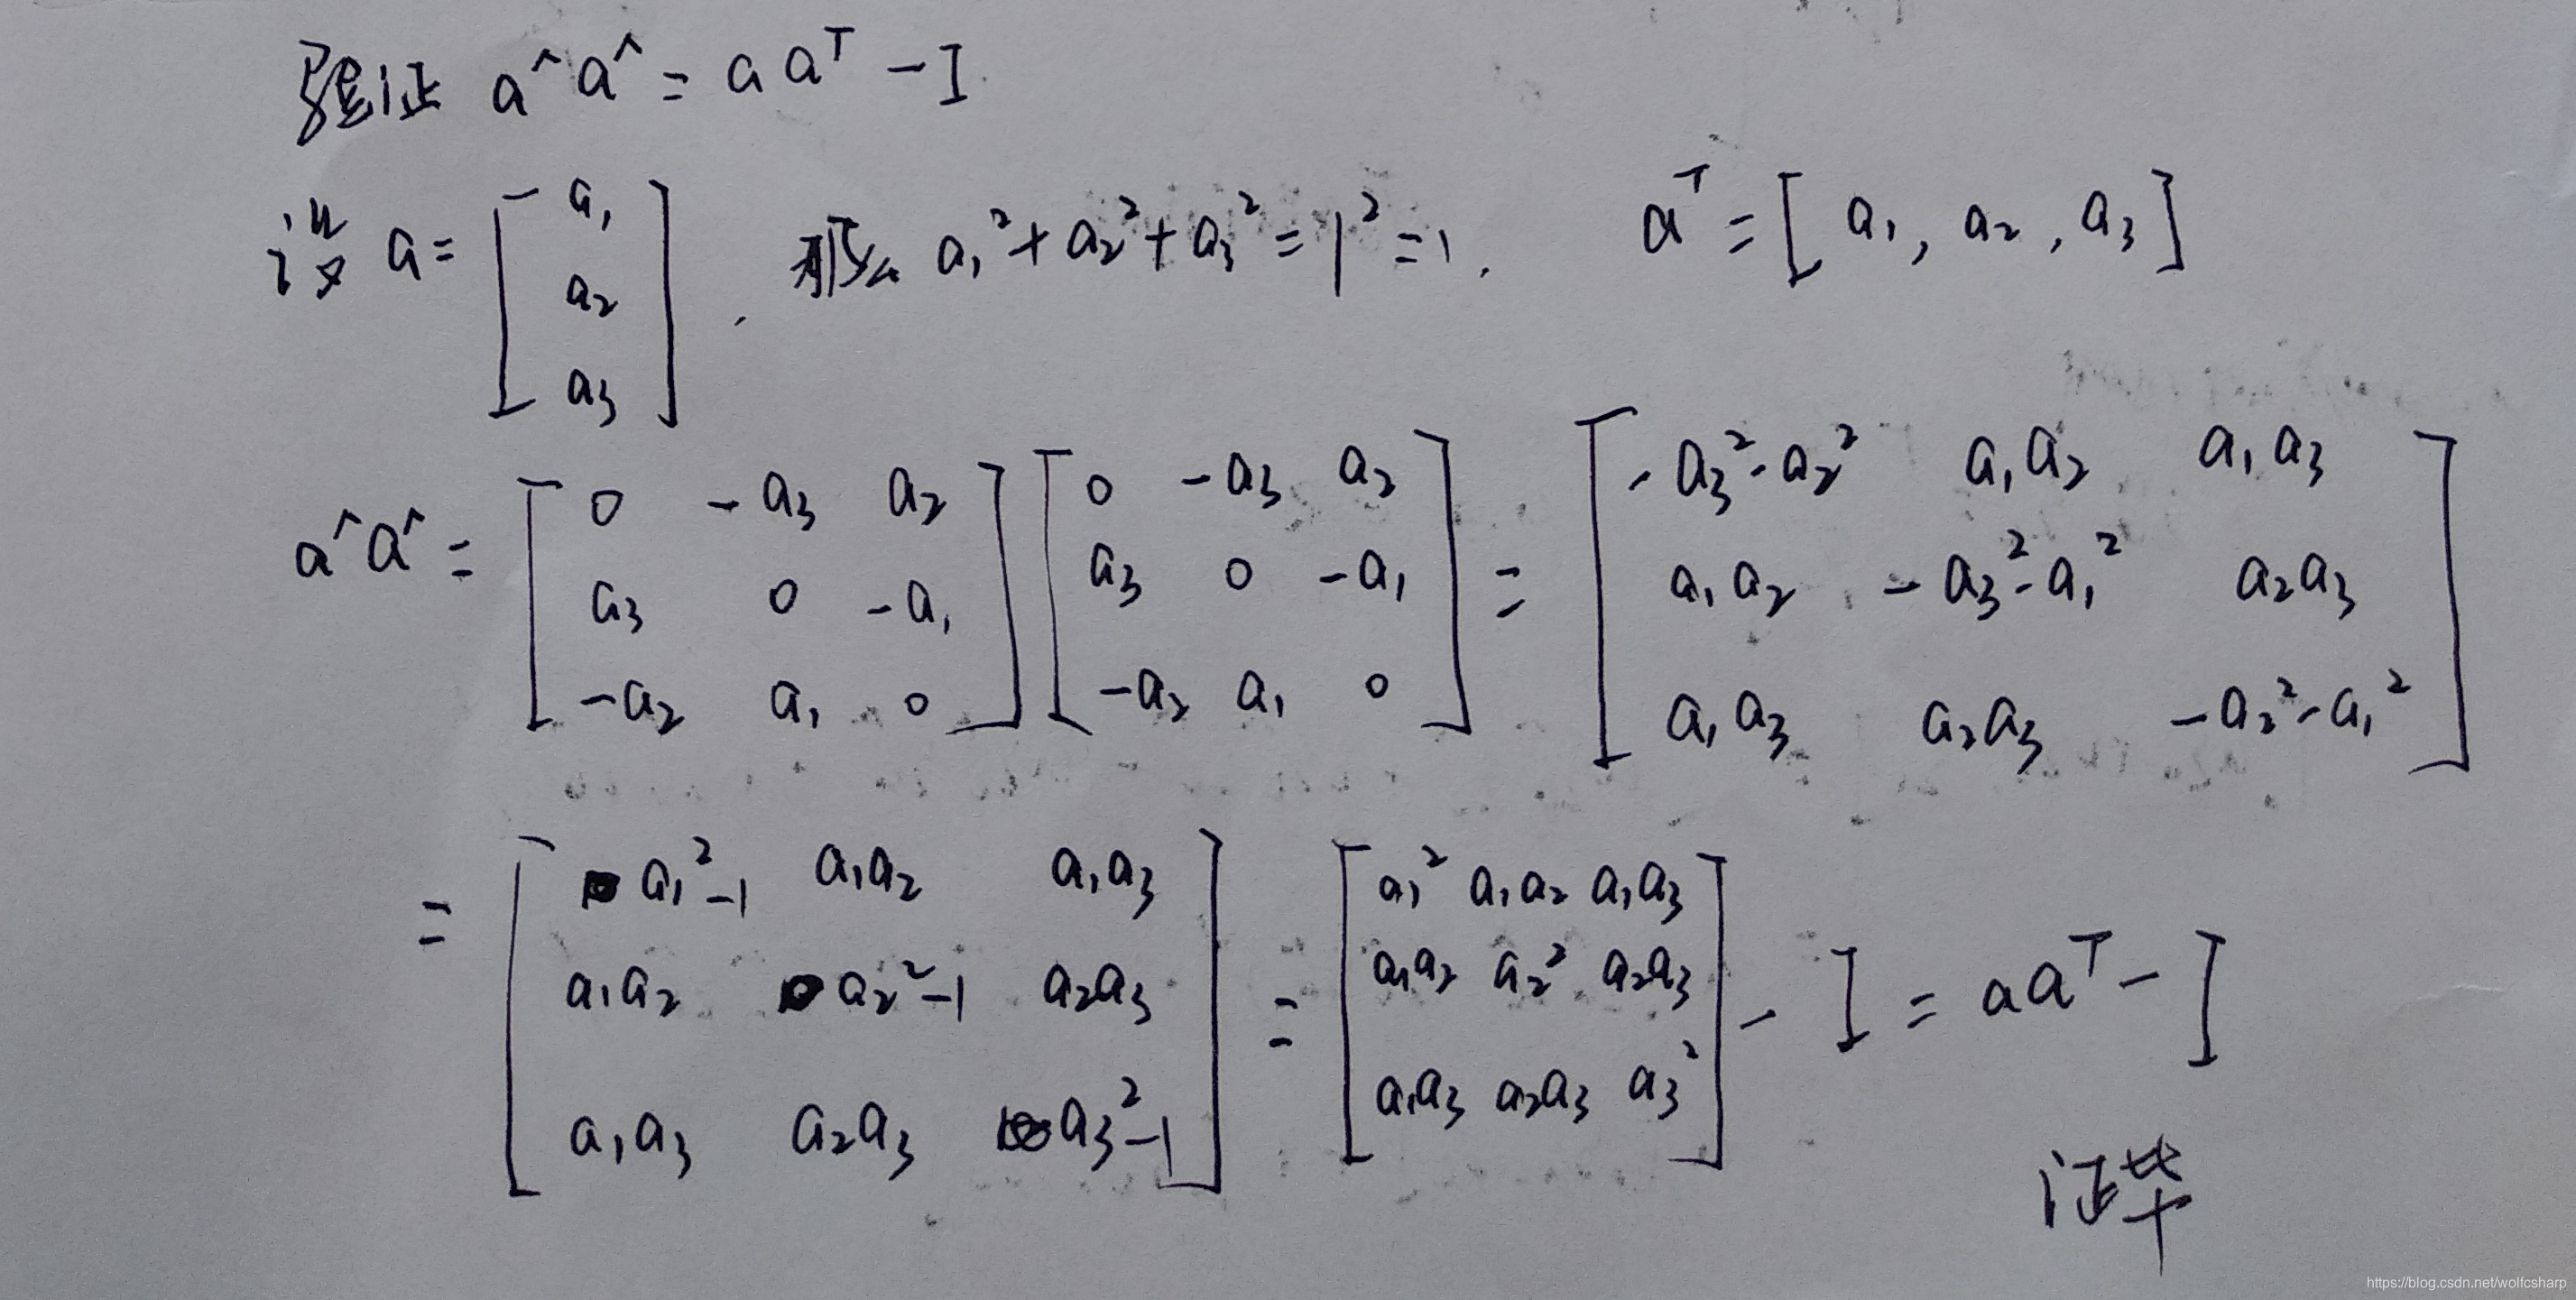 验证 a^a^ = aaᵀ - I
设 a = [a₁ a₂ a₃] . 那么 a₁² + a₂² + a₃² = 1² = 1 . aᵀ = [a₁, a₂, a₃]
a^a^ = [0 -a₃ a₂; a₃ 0 -a₁; -a₂ a₁ 0] [0 -a₃ a₂; a₃ 0 -a₁; -a₂ a₁ 0] = [-a₃²-a₂² a₁a₂ a₁a₃; a₁a₂ -a₃²-a₁² a₂a₃; a₁a₃ a₂a₃ -a₂²-a₁²]
= [a₁²-1 a₁a₂ a₁a₃; a₁a₂ a₂²-1 a₂a₃; a₁a₃ a₂a₃ a₃²-1] = [a₁² a₁a₂ a₁a₃; a₁a₂ a₂² a₂a₃; a₁a₃ a₂a₃ a₃²] - I = aaᵀ - I
证毕
https://blog.csdn.net/wolfcsharp